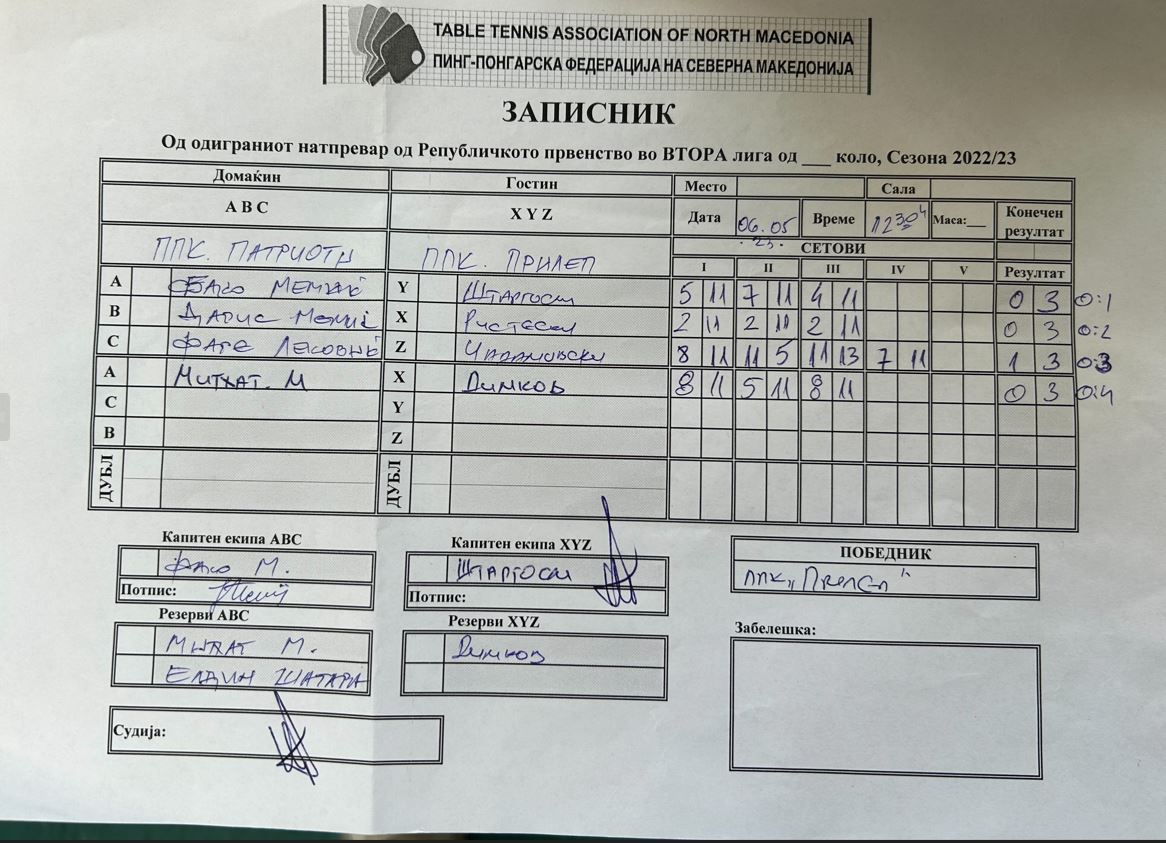 TABLE TENNIS ASSOCIATION OF NORTH MACEDONIA
ПИНГ-ПОНГАРСКА ФЕДЕРАЦИЈА НА СЕВЕРНА МАКЕДОНИЈА
ЗАПИСНИК
Од одиграниот натпревар од Републичкото првенство во ВТОРА лига од ___ коло, Сезона 2022/23
Домаќин Гостин Место Сала
A B C X Y Z Дата 06.05.23. Време 12 30 ч Маса:__ Конечен резултат
ППК. ПАТРИОТИ ППК. ПРИЛЕП СЕТОВИ
I II III IV V Резултат
A Y Штаргоски 5 11 7 11 4 11 0 3 0:1
B X Ристески 2 11 2 11 2 11 0 3 0:2
C Z 8 11 11 5 11 13 7 11 1 3 0:3
A Митхат. М X Димков 8 11 5 11 8 11 0 3 0:4
C Y
B Z
ДУБЛ ДУБЛ
Капитен екипа ABC Капитен екипа XYZ ПОБЕДНИК
М. Штаргоски ППК „Прилеп"
Потпис: Потпис:
Резерви ABC Резерви XYZ Забелешка:
Митхат М. Димков
Елдин Шатара
Судија: